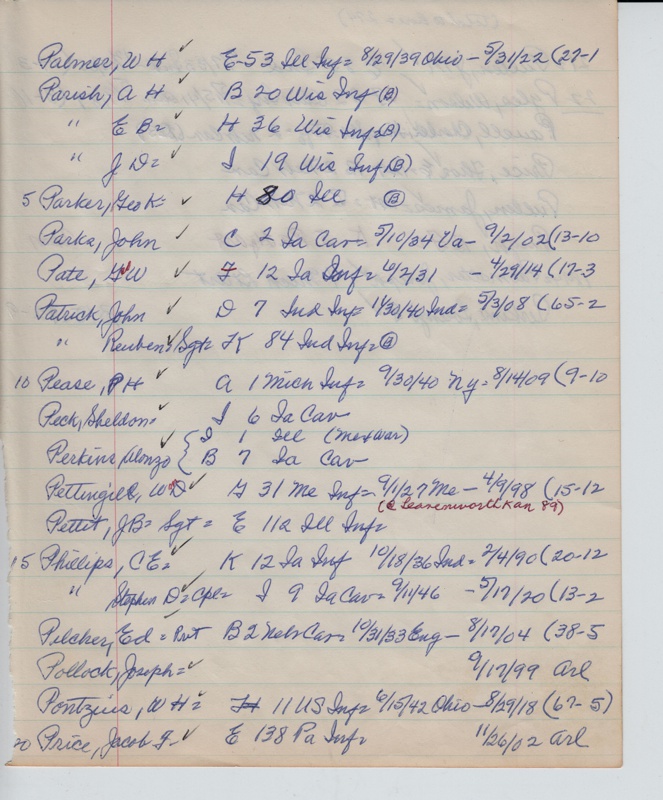 Palmer, W H ✓ E-53 Ill Inf= 8/29/39 Ohio - 5/31/22 (27-1
Parish, A H ✓ B 20 Wis Inf (B)
" E B= ✓ H 36 Wis Inf (B)
" J D= ✓ I 19 Wis Inf (B)
5 Parker, Geo K= ✓ H 80 Ill (B)
Parks, John ✓ C 2 Ia Cav= 5/10/34 Va- 9/2/02 (13-10
Pate, W ✓ 12 Ia Inf= 6/2/31 - 4/29/14 (17-3
Patrick, John ✓ D 7 Ind Inf= 11/30/40 Ind= 5/3/08 (65-2
" Reuben= Sgt= K 84 Ind Inf= (B)
10 Pease, P H ✓ A 1 Mich Inf= 9/30/40 Ny= 8/14/09 (9-10
Peck, Sheldon= ✓ I 6 Ia Cav
I 1 Ill (Mex War)
Perkins, Alonzo ✓ { B 7 Ia Cav
Pettingill, Wm D ✓ F 31 Me Inf= 9/1/27 Me - 4/9/98 (15-12
(@ Leavenworth Kan 89)
Pettit, J B= Sgt= E 112 Ill Inf=
15 Phillips, C E= ✓ K 12 Ia Inf 10/18/36 Ind= 2/4/90 (20-12
" Stephen D= Cpl= I 9 Ia Cav= 9/11/46 - 5/17/20 (13-2
Pilcher, Ed= Pvt B 2 Nebr Cav= 10/31/33 Eng - 8/17/04 (38-5
Pollock, Joseph= ✓ 9/17/99 Arl
Pontzius, W H= ✓ H 11 US Inf= 6/15/42 Ohio - 8/29/18 (67-5)
20 Price, Jacob F- ✓ E 138 Pa Inf= 11/26/02 Arl